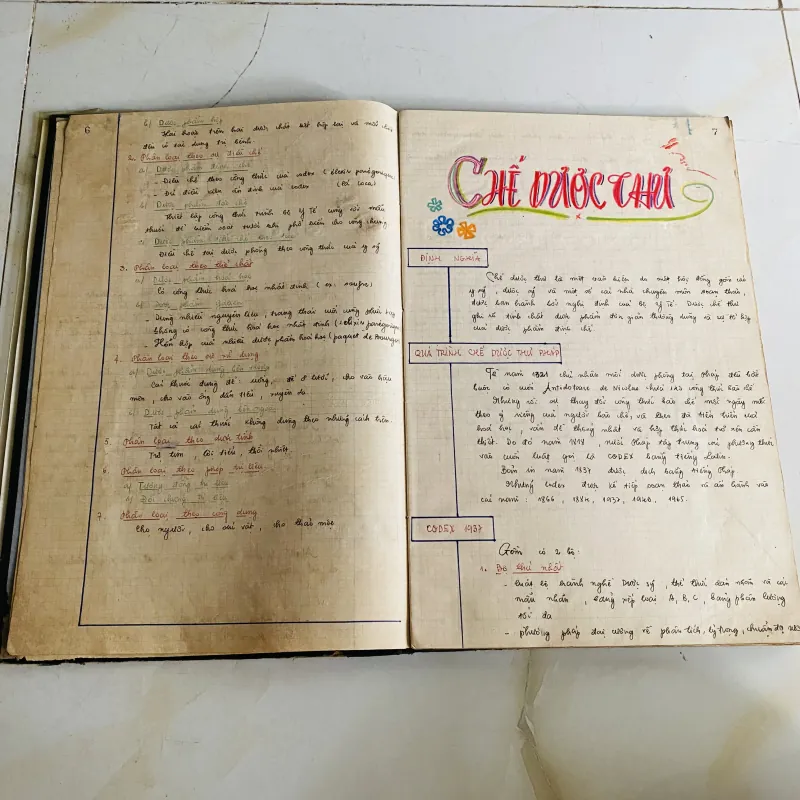 6
b/ Dược phẩm kép
Hai hoặc trên hai dược chất kết hợp lại và mỗi chất
đều có tác dụng trị bệnh.
2. Phân loại theo sự điều chế
a/ Dược phẩm đính chế
- Điều chế theo công thức của codex (élixir parégorique)
- Đủ điều kiện ổn định của codex
b/ Dược phẩm đặc chế
Thiết lập công thức trình bộ Y Tế cùng với mẫu
thuốc để kiểm soát trước khi phổ biến cho công chúng
c/ Dược phẩm
Điều chế tại dược phòng theo công thức của y sỹ
3. Phân loại theo thể chất
a/ Dược phẩm
là công thức hoá học nhất định (ex: soufre)
b/ Dược phẩm
- Dùng nhiều nguyên liệu, trạng thái
không có công thức hoá học nhất định (elixir parégorique)
- Hỗn hợp của nhiều dược phẩm hoá học (paquet de Bourget)
4. Phân loại theo sự sử dụng
a/ Dược phẩm dùng bên trong
Các thuốc dùng để: uống, để ở lưỡi, cho vào hậu
môn, cho vào ống dẫn tiểu, xuyên da
b/ Dược phẩm dùng bên ngoài
Tất cả các thuốc không dùng theo những cách trên.
5. Phân loại theo dược tính
Trợ tim, lợi tiểu, thối nhiệt.
6. Phân loại theo phép trị liệu
a/ Tương đồng trị liệu
b/ Đối chứng trị liệu
7. Phân loại theo công dụng
Cho người, cho thú vật, cho thảo mộc
7
CHẾ DƯỢC THƯ
ĐỊNH NGHĨA
Chế dược thư là một văn kiện do một hội đồng gồm các
y sỹ, dược sỹ và một số các nhà chuyên môn soạn thảo,
được ban hành bởi nghị định của bộ Y Tế. Dược chế thư
ghi rõ tính chất dược phẩm đơn giản thường dùng và sự tổ hợp
của dược phẩm đính chế.
QUÁ TRÌNH CHẾ DƯỢC THƯ PHÁP
Từ năm 1321 chủ nhân mỗi dược phòng tại Pháp đều bắt
buộc có cuốn Antidotaire de Nicolas chứa 143 công thức bào chế
Nhưng với sự thay đổi công thức bào chế mỗi ngày mỗi
theo ý riêng của người bào chế, và theo đà tiến triển của
hoá học, vấn đề thống nhất và hợp thức hoá trở nên cần
thiết. Do đó năm 1818, nước Pháp tập trung các phương thức
vào cuốn luật gọi là CODEX bằng tiếng Latin.
Bản in năm 1837 được dịch bằng tiếng Pháp.
Những Codex được kế tiếp soạn thảo và ấn hành vào
các năm: 1866, 1884, 1937, 1949, 1965.
CODEX 1937
Gồm có 2 bộ:
1. Bộ thứ nhất
- Luật lệ hành nghề Dược sỹ, thể thức dán nhãn và các
mẫu nhãn, sự xếp loại A, B, C, bảng phân lượng
tối đa
- phương pháp đại cương về phân tích, lý trọng, chuẩn độ